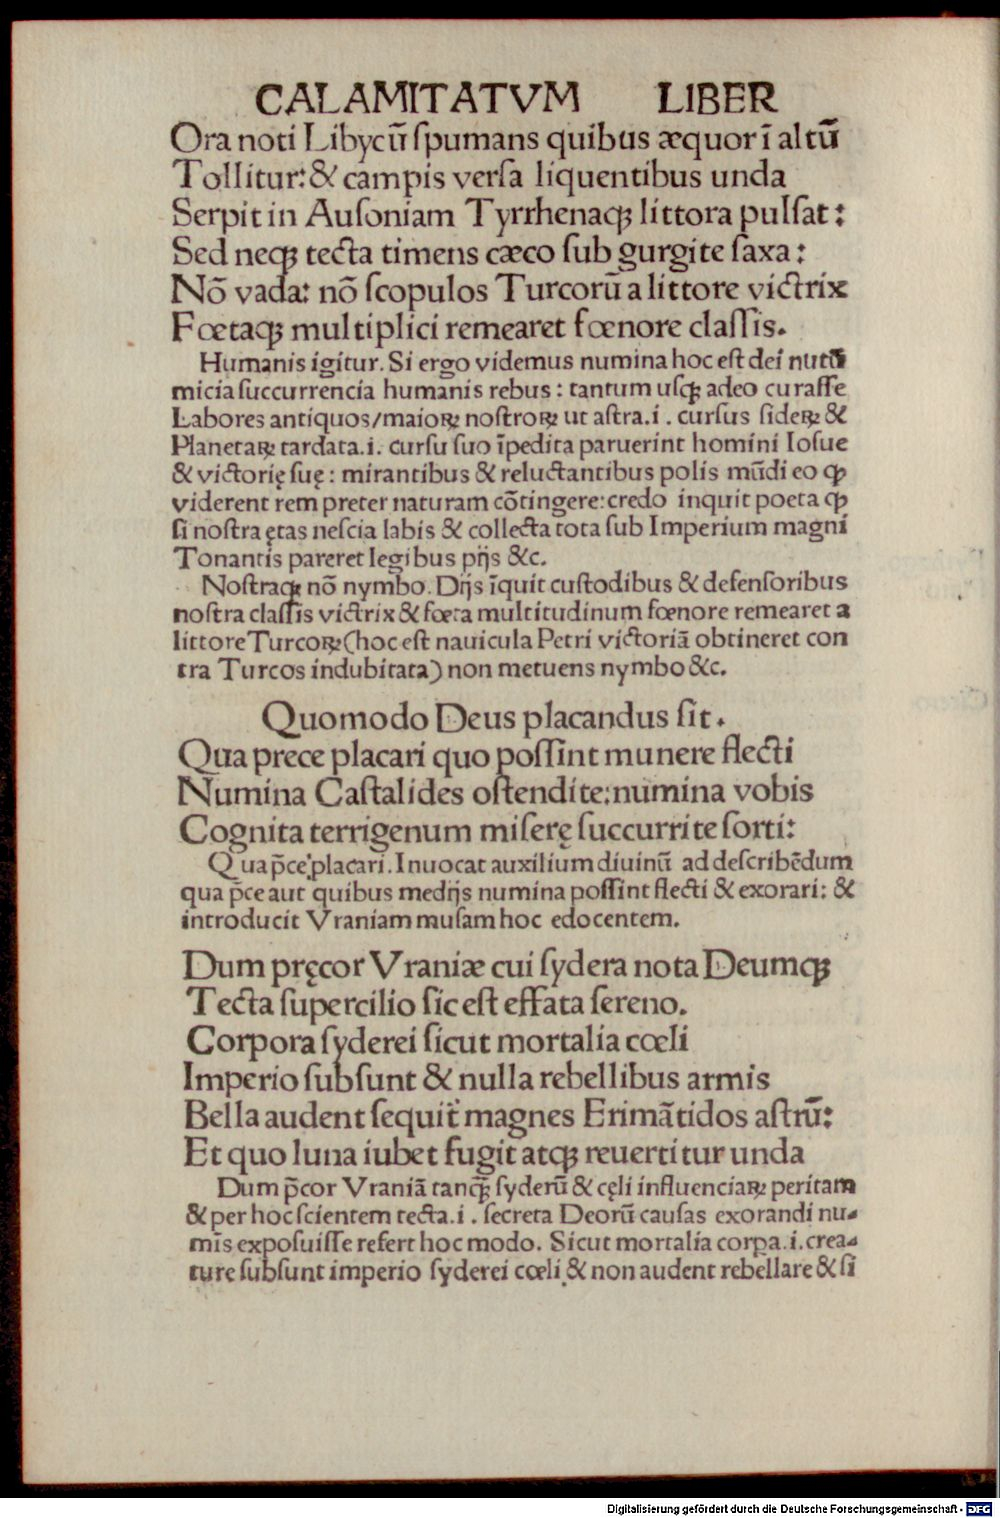 CALAMITATVM LIBER
Ora noti Libycū ſpumans quibus æquor ī altū
Tollitur: & campis verſa liquentibus unda
Serpit in Auſoniam Tyrrhenaqꝫ littora pulſat:
Sed neqꝫ tecta timens cæco ſub gurgite ſaxa:
Nō vada: nō ſcopulos Turcorū a littore victrix
Fœtaqꝫ multiplici remearet fœnore claſſis.
Humanis igitur. Si ergo videmus numina hoc eſt dei nutū
micia ſuccurrencia humanis rebus: tantum uſqꝫ adeo curaſſe
Labores antiquos/maioꝝ noſtroꝝ ut aſtra.i. curſus ſideꝝ &
Planetaꝝ tardata.i. curſu ſuo īpedita paruerint homini Ioſue
& victorię ſuę: mirantibus & reluctantibus polis mūdi eo ꝙ
viderent rem preter naturam cōtingere: credo inquit poeta ꝙ
ſi noſtra ętas neſcia labis & collecta tota ſub Imperium magni
Tonantis pareret legibus pijs &c.
Noſtraqꝫ nō nymbo. Dijs īquit cuſtodibus & defenſoribus
noſtra claſſis victrix & fœta multitudinum fœnore remearet a
littore Turcoꝝ (hoc eſt nauicula Petri victoriā obtineret con
tra Turcos indubitata) non metuens nymbo &c.
Quomodo Deus placandus ſit.
Qua prece placari quo poſſint munere flecti
Numina Caſtalides oſtendite: numina vobis
Cognita terrigenum miſerę ſuccurrite ſorti:
Qua p̄ce placari. Inuocat auxilium diuinū ad deſcribēdum
qua p̄ce aut quibus medijs numina poſſint flecti & exorari: &
introducit Vraniam muſam hoc edocentem.
Dum pręcor Vraniæ cui ſydera nota Deumqꝫ
Tecta ſupercilio ſic eſt effata ſereno.
Corpora ſyderei ſicut mortalia cœli
Imperio ſubſunt & nulla rebellibus armis
Bella audent ſequit̉ magnes Erimātidos aſtrū:
Et quo luna iubet fugit atqꝫ reuertitur unda
Dum p̄cor Vraniā tanqꝫ̄ ſyderū & cęli influenciaꝝ peritam
& per hoc ſcientem tecta.i. ſecreta Deorū cauſas exorandi nu-
mīs expoſuiſſe refert hoc modo. Sicut mortalia corꝑa.i. crea-
ture ſubſunt imperio ſyderei cœli & non audent rebellare & ſi
Digitalisierung gefördert durch die Deutsche Forschungsgemeinschaft - DFG